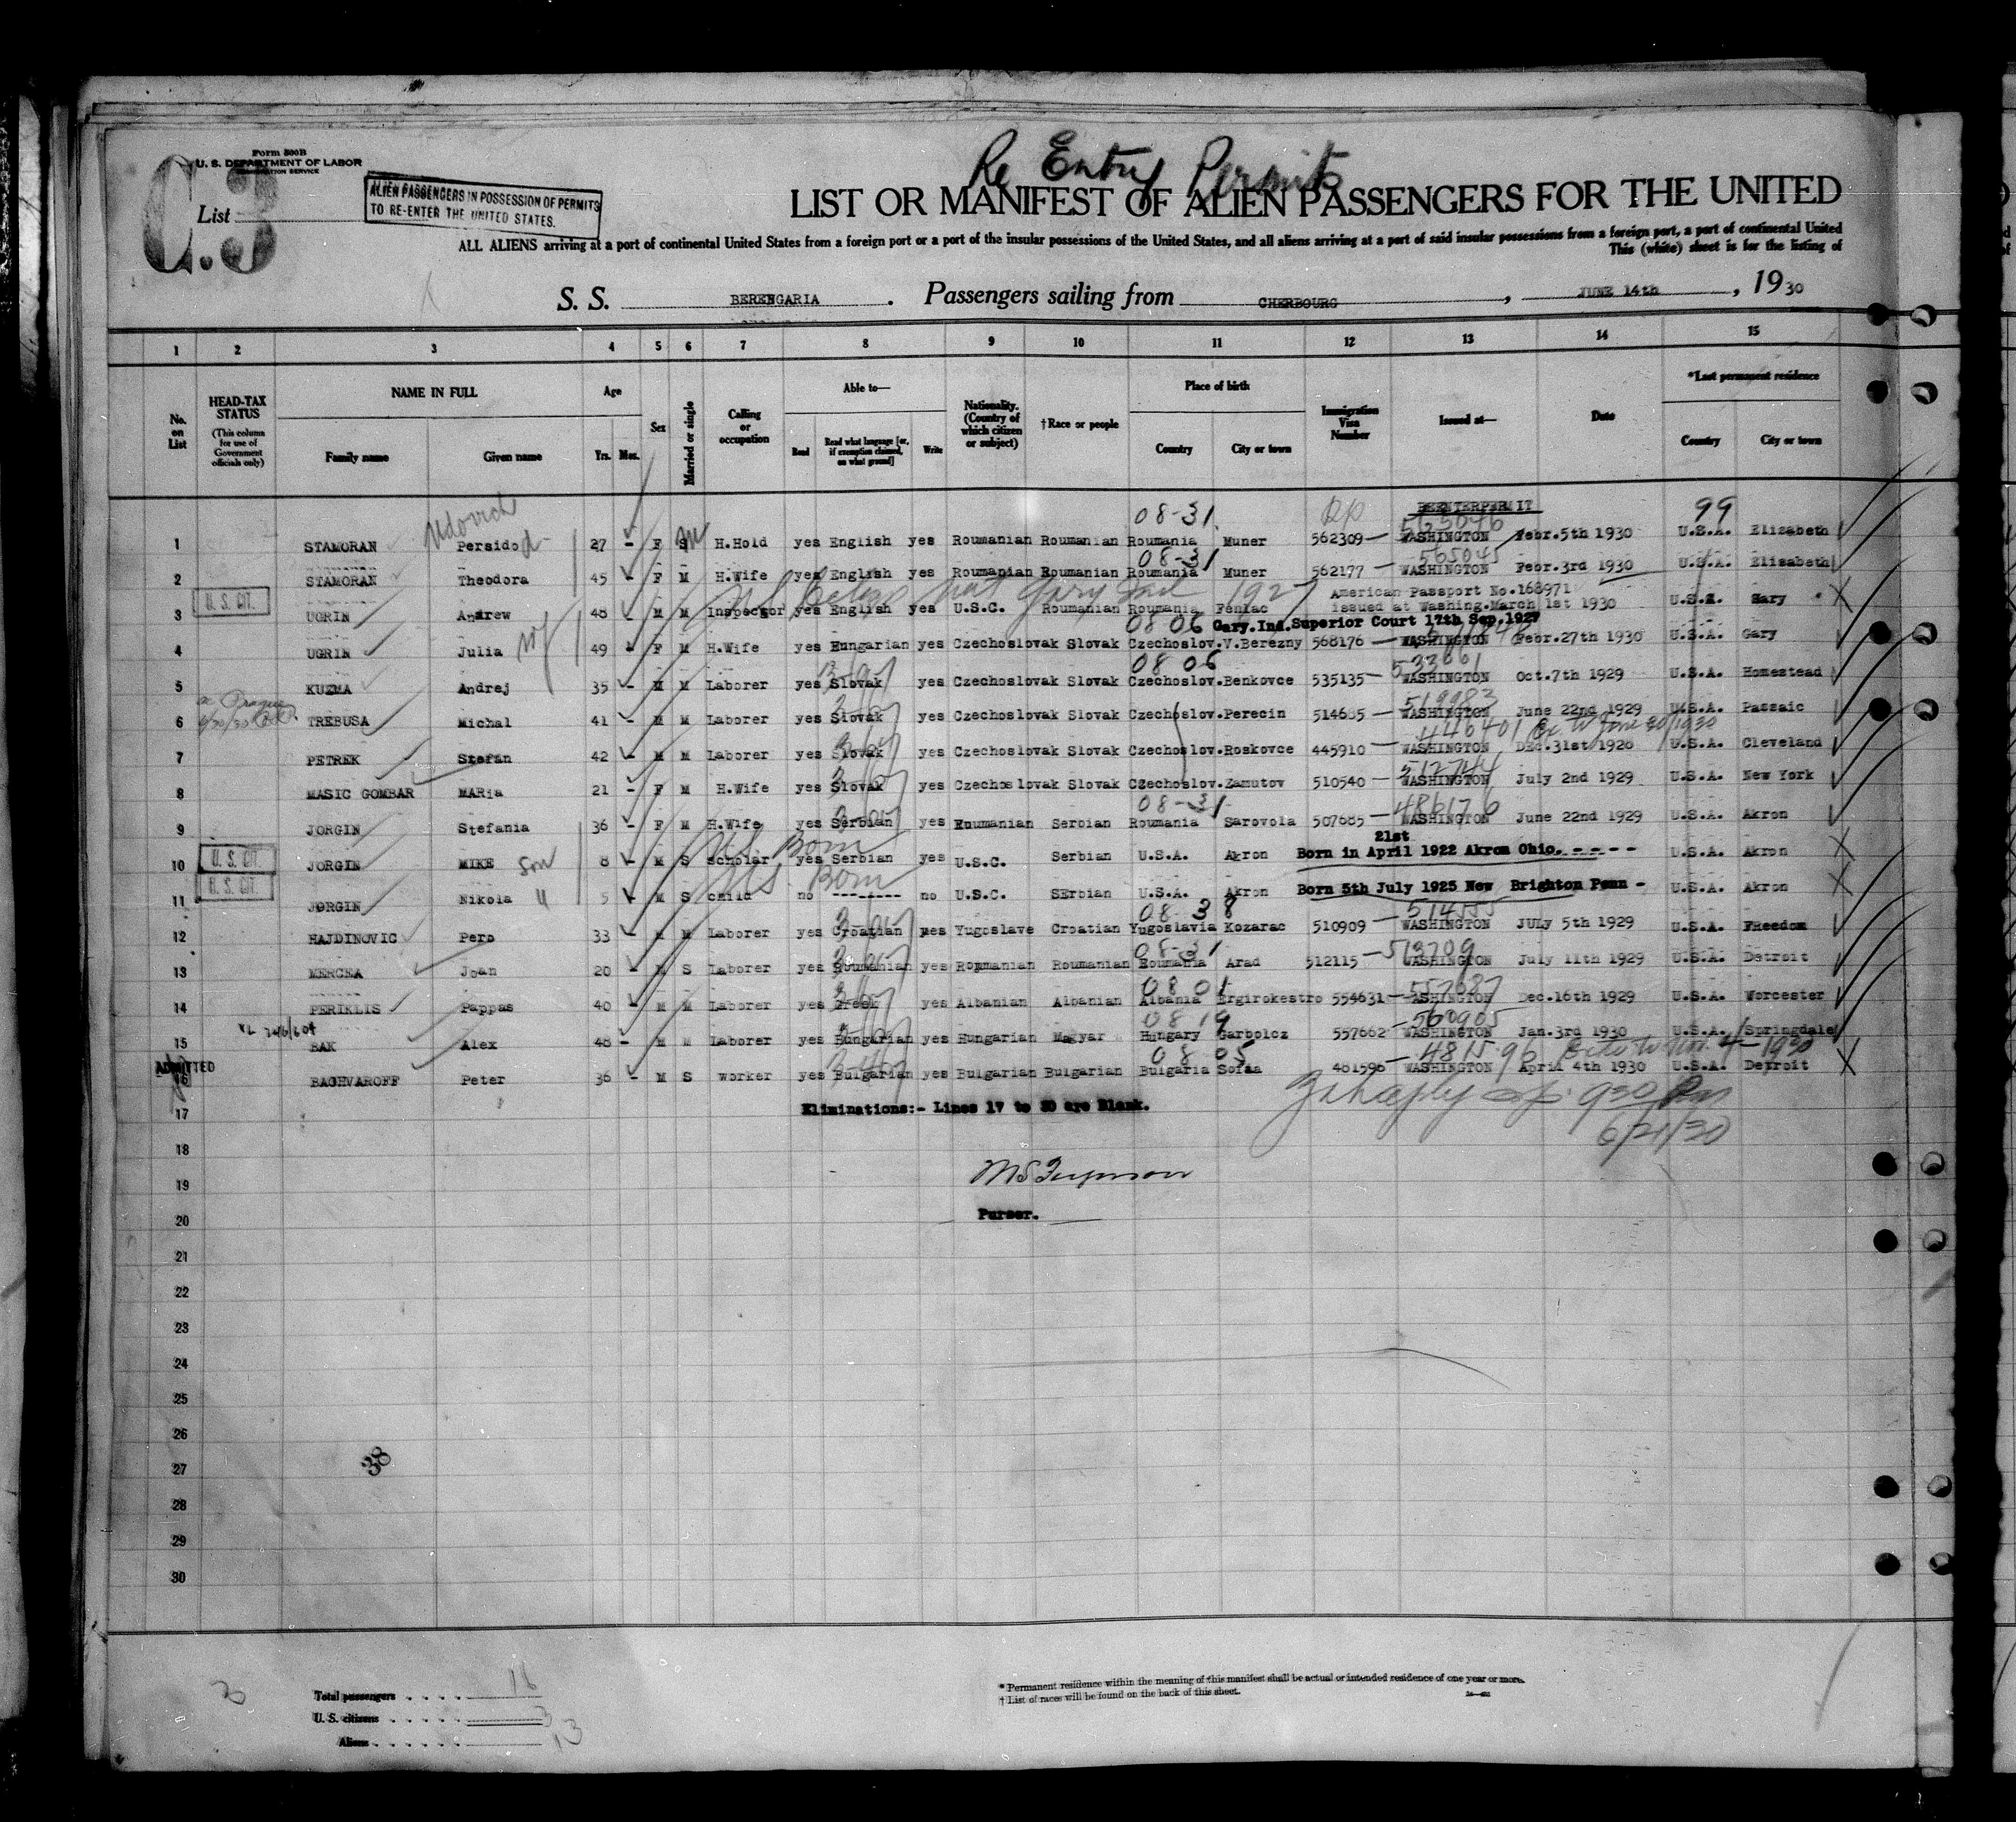 Form 500B
U. S. DEPARTMENT OF LABOR
IMMIGRATION SERVICE
C.3
List
ALIEN PASSENGERS IN POSSESSION OF PERMITS
TO RE-ENTER THE UNITED STATES.
Re Entry Permits
LIST OR MANIFEST OF ALIEN PASSENGERS FOR THE UNITED
ALL ALIENS arriving at a port of continental United States from a foreign port or a port of the insular possessions of the United States, and all aliens arriving at a port of said insular possessions from a foreign port, a port of continental United
This (white) sheet is for the listing of
S. S. BERENGARIA . Passengers sailing from CHERBOURG , JUNE 14th , 1930
1 2 3 4 5 6 7 8 9 10 11 12 13 14 15
No. on List
HEAD-TAX STATUS (This column for use of Government officials only)
NAME IN FULL Family name Given name
Age Yrs. Mos.
Sex
Married or single
Calling or occupation
Able to— Read Read what language [or, if exemption claimed, on what ground] Write
Nationality. (Country of which citizen or subject)
†Race or people
Place of birth Country City or town
Immigration Visa Number
Issued at—
Date
*Last permanent residence Country City or town
08-31 REENTERPERMIT 99
Udovich 565046
1 STAMORAN Persida 27 - F S M H.Hold yes English yes Roumanian Roumanian Roumania Muner 562309 — WASHINGTON Febr.5th 1930 U.S.A. Elizabeth
08-31 565045
2 STAMORAN Theodora 45 - F M H.Wife yes English yes Roumanian Roumanian Roumania Muner 562177 — WASHINGTON Febr.3rd 1930 U.S.A. Elisabeth
U. S. CIT. Nat Gary Ind 1927 American Passport No.168971
3 UGRIN Andrew 48 M M Inspector yes English yes U.S.C. Roumanian Roumania Feniac issued at Washing.March 1st 1930 U.S.A. Gary
08 06 Gary.Ind.Superior Court 17th Sep.1927
4 UGRIN Julia W 49 - F M H.Wife yes Hungarian yes Czechoslovak Slovak Czechoslov.V.Berezny 568176 — WASHINGTON Febr.27th 1930 U.S.A. Gary
08 06 533661
5 KUZMA Andrej 35 - M M Laborer yes Slovak yes Czechoslovak Slovak Czechoslov.Benkovce 535135 — WASHINGTON Oct.7th 1929 U.S.A. Homestead
519983
6 TREBUSA Michal 41 - M M Laborer yes Slovak yes Czechoslovak Slovak Czechoslov.Perecin 514685 — WASHINGTON June 22nd 1929 U.S.A. Passaic
446401 Ex to June 30/1930
7 PETREK Stefan 42 - M M Laborer yes Slovak yes Czechoslovak Slovak Czechoslov.Roskovce 445910 — WASHINGTON DEC.31st 1928 U.S.A. Cleveland
512744
8 MASIC GOMBAR MARia 21 - F M H.Wife yes Slovak yes Czechoslovak Slovak Czechoslov.Zamutov 510540 — WASHINGTON July 2nd 1929 U.S.A. New York
08-31 486176
9 JORGIN Stefania 36 - F M H.Wife yes Serbian yes Roumanian Serbian Roumania Sarovola 507685 — WASHINGTON June 22nd 1929 U.S.A. Akron
U. S. CIT. US Born 21st
10 JORGIN MIKE son 8 - M S scholar yes Serbian yes U.S.C. Serbian U.S.A. Akron Born in April 1922 Akron Ohio. - - - - - U.S.A. Akron
U. S. CIT. US. Born
11 JORGIN Nikola " 5 - M S child no --------- no U.S.C. SErbian U.S.A. Akron Born 5th July 1925 New Brighton Penn - U.S.A. Akron
08 38 514555
12 HAJDINOVIC Pero 33 - M M Laborer yes Croatian yes Yugoslave Croatian Yugoslavia Kozarac 510909 — WASHINGTON JULY 5th 1929 U.S.A. FReedom
08-31 513709
13 MERCEA Joan 20 - M S Laborer yes Roumanian yes Roumanian Roumanian Roumania Arad 512115 — WASHINGTON July 11th 1929 U.S.A. Detroit
08 01 557687
14 PERIKLIS Pappas 40 - M M Laborer yes Greek yes Albanian Albanian Albania Ergirokestro 554631 — WASHINGTON Dec.16th 1929 U.S.A. Worcester
08 19 560905
15 BAK Alex 48 - M M Laborer yes Hungarian yes Hungarian Magyar Hungary Garbolcz 557662 — WASHINGTON Jan.3rd 1930 U.S.A. Springdale
ADMITTED 08 05 481596
16 BAGHVAROFF Peter 36 - M S worker yes Bulgarian yes Bulgarian Bulgarian Bulgaria Sofia 481596 — WASHINGTON April 4th 1930 U.S.A. Detroit
17 Eliminations:- Lines 17 to 30 are Blank.
930 Pm
6/21/30
18
19
20 Purser.
21
22
23
24
25
26
27
38
28
29
30
Total passengers . . . . 16
U. S. citizens . . . . . 3
Aliens . . . . . . 13
* Permanent residence within the meaning of this manifest shall be actual or intended residence of one year or more.
† List of races will be found on the back of this sheet.